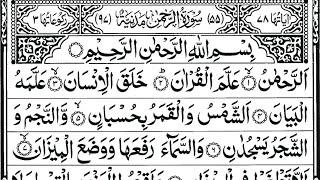 اٰیَاتُهَا ٧٨ (٥٥) سُوْرَةُ الرَّحْمٰنِ مَدَنِيَّةٌ (٩٧) رُكُوْعَاتُهَا ٣
بِسْمِ اللّٰهِ الرَّحْمٰنِ الرَّحِيْمِ
اَلرَّحْمٰنُ ١ عَلَّمَ الْقُرْاٰنَ ٢ خَلَقَ الْاِنْسَانَ ٣ عَلَّمَهُ
الْبَيَانَ ٤ اَلشَّمْسُ وَالْقَمَرُ بِحُسْبَانٍ ٥ وَّالنَّجْمُ وَ
الشَّجَرُ يَسْجُدٰنِ ٦ وَالسَّمَآءَ رَفَعَهَا وَوَضَعَ الْمِيْزَانَ ٧